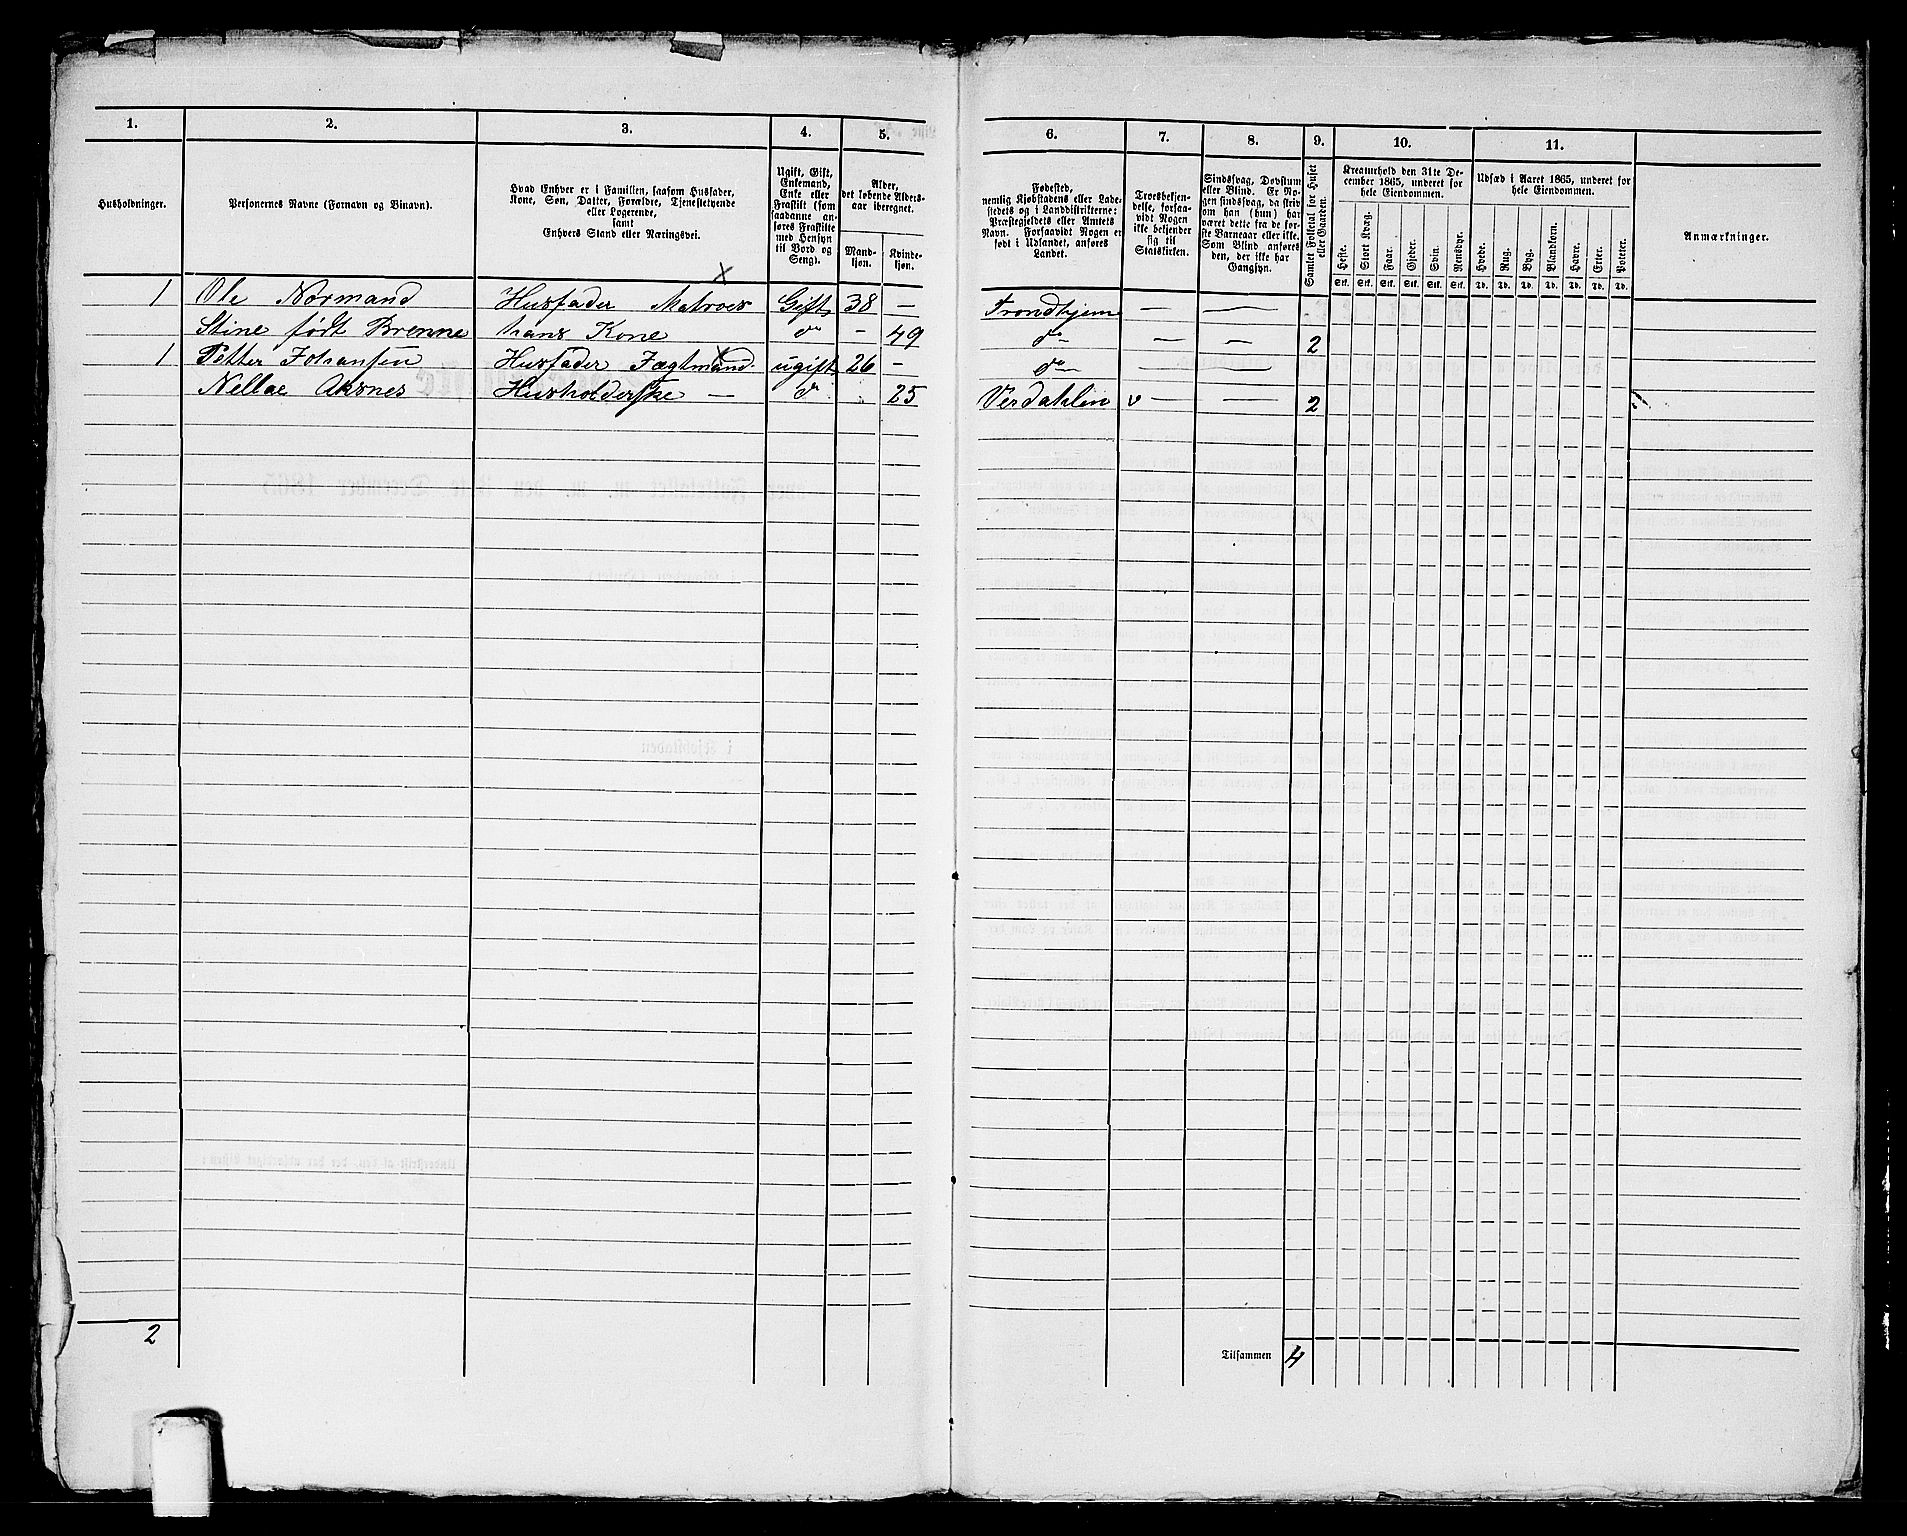 1. 2. 3. 4. 5. 6. 7. 8. 9. 10. 11.
Husholdninger.
Personernes Navne (Fornavn og Binavn).
Hvad Enhver er i Familien, saasom Husfader,
Kone, Søn, Datter, Forældre, Tjenestetyende
eller Logerende,
samt
Enhvers Stand eller Næringsvei.
Ugift, Gift,
Enkemand,
Enke eller
Fraskilt (som
saadanne an-
føres Fraskilte
med Hensyn
til Bord og
Seng).
Alder,
det løbende Alders-
aar iberegnet.
Mand-
kjøn.
Kvinde-
kjøn.
Fødested,
nemlig Kjøbstadens eller Lade-
stedets og i Landdistrikterne:
Præstegjeldets eller Amtets
Navn. Forsaavidt Nogen er
født i Udlandet, anføres
Landet.
Troesbekjen-
delse, forsaa-
vidt Nogen
ikke bekjender
sig til
Statskirken.
Sindssvag, Døvstum
eller Blind. Er No-
gen sindssvag, da skriv
om han (hun) har
været dette fra de før-
ste Barneaar eller ikke.
Som Blind anføres
den, der ikke har
Gangsyn.
Samlet Folketal for Huset
eller Gaarden.
Kreaturhold den 31te De-
cember 1865, underet for
hele Eiendommen.
Heste.
Stort Kvæg.
Faar.
Gjeder.
Svin.
Rensdyr.
Stk. Stk. Stk. Stk. Stk. Stk.
Udsæd i Aaret 1865, underet for
hele Eiendommen.
Hvede.
Rug.
Byg.
Blandkorn.
Havre.
Erter.
Poteter.
Td. Td. Td. Td. Td. Td. Td.
Anmærkninger.
1 Ole Normand Husfader Matroes Gift 38 — Trondhjem — —
Stine født Brenne hans Kone do — 49 do — — 2
1 Petter Johansen Husfader Jægtmand ugift 26 — do — —
Nellae Aksnes Husholderske — do 25 Verdahlen v — — 2
2
Tilsammen 4